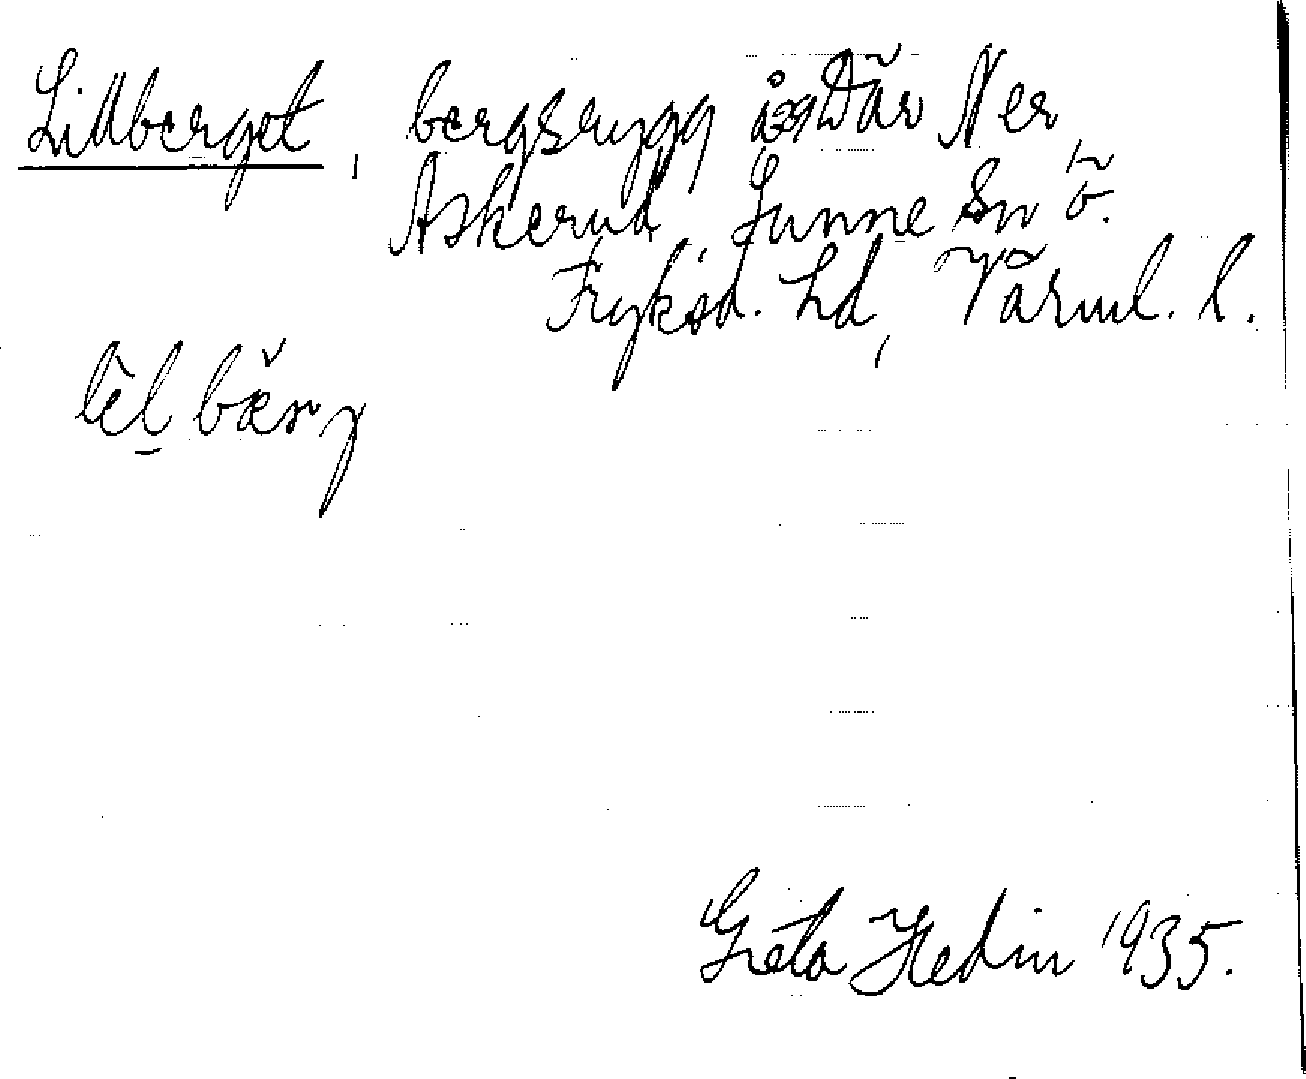 Lillberget, bergsrygg åt Där Ner
Askerud, Sunne Sn Ö.
Fryksd. Hd, Värml. l.
Greta Hedin 1935.